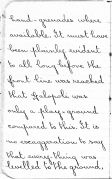 hand-grenades where
available. It must have
been plainly evident
to all long before the
front line was reached
that Gallipoli was
only a play-ground
compared to this. It is
no exaggeration to say
that every thing was
levelled to the ground,